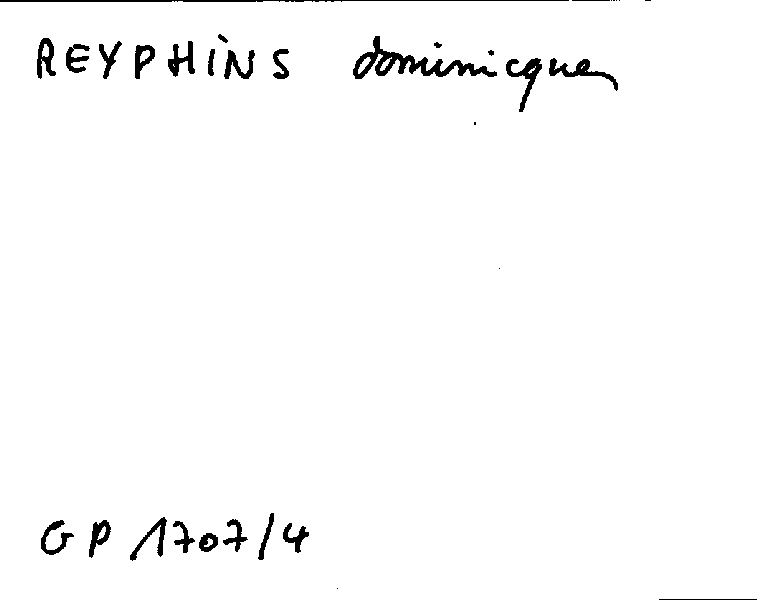 REYPHINS dominicque
GP 1707/4